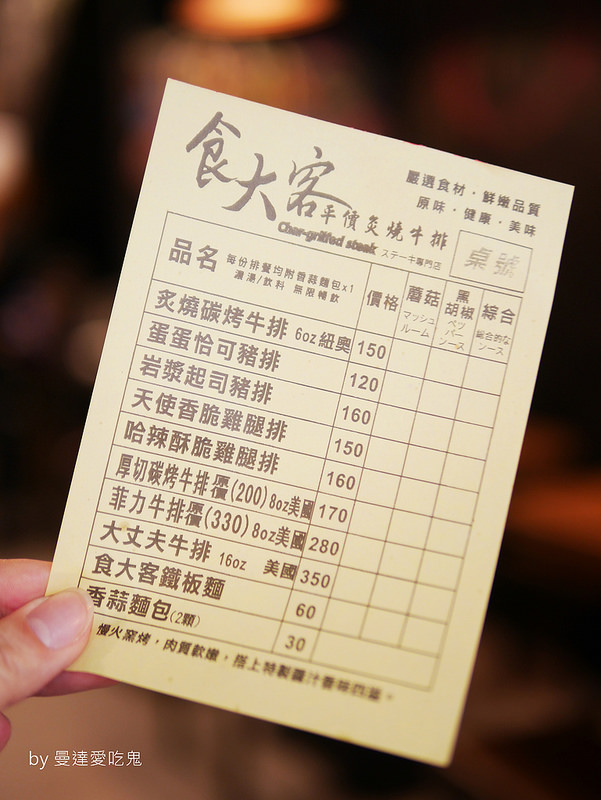 食大客
平價炙燒牛排
Char-grilled steak ステーキ専門店
嚴選食材・鮮嫩品質
原味・健康・美味
桌號
品名 每份排餐均附香蒜麵包x1
濃湯/飲料 無限暢飲
價格
蘑菇
マッシュ
ルーム
黑
胡椒
ペッ
パー
ソース
綜合
総合的な
ソース
炙燒碳烤牛排 6oz紐奧 150
蛋蛋恰可豬排 120
岩漿起司豬排 160
天使香脆雞腿排 150
哈辣酥脆雞腿排 160
厚切碳烤牛排 原價(200) 8oz美國 170
菲力牛排 原價(330) 8oz美國 280
大丈夫牛排 16oz 美國 350
食大客鐵板麵 60
香蒜麵包(2顆) 30
慢火窯烤，肉質軟嫩，搭上特製醬汁香味四溢。
by 曼達愛吃鬼